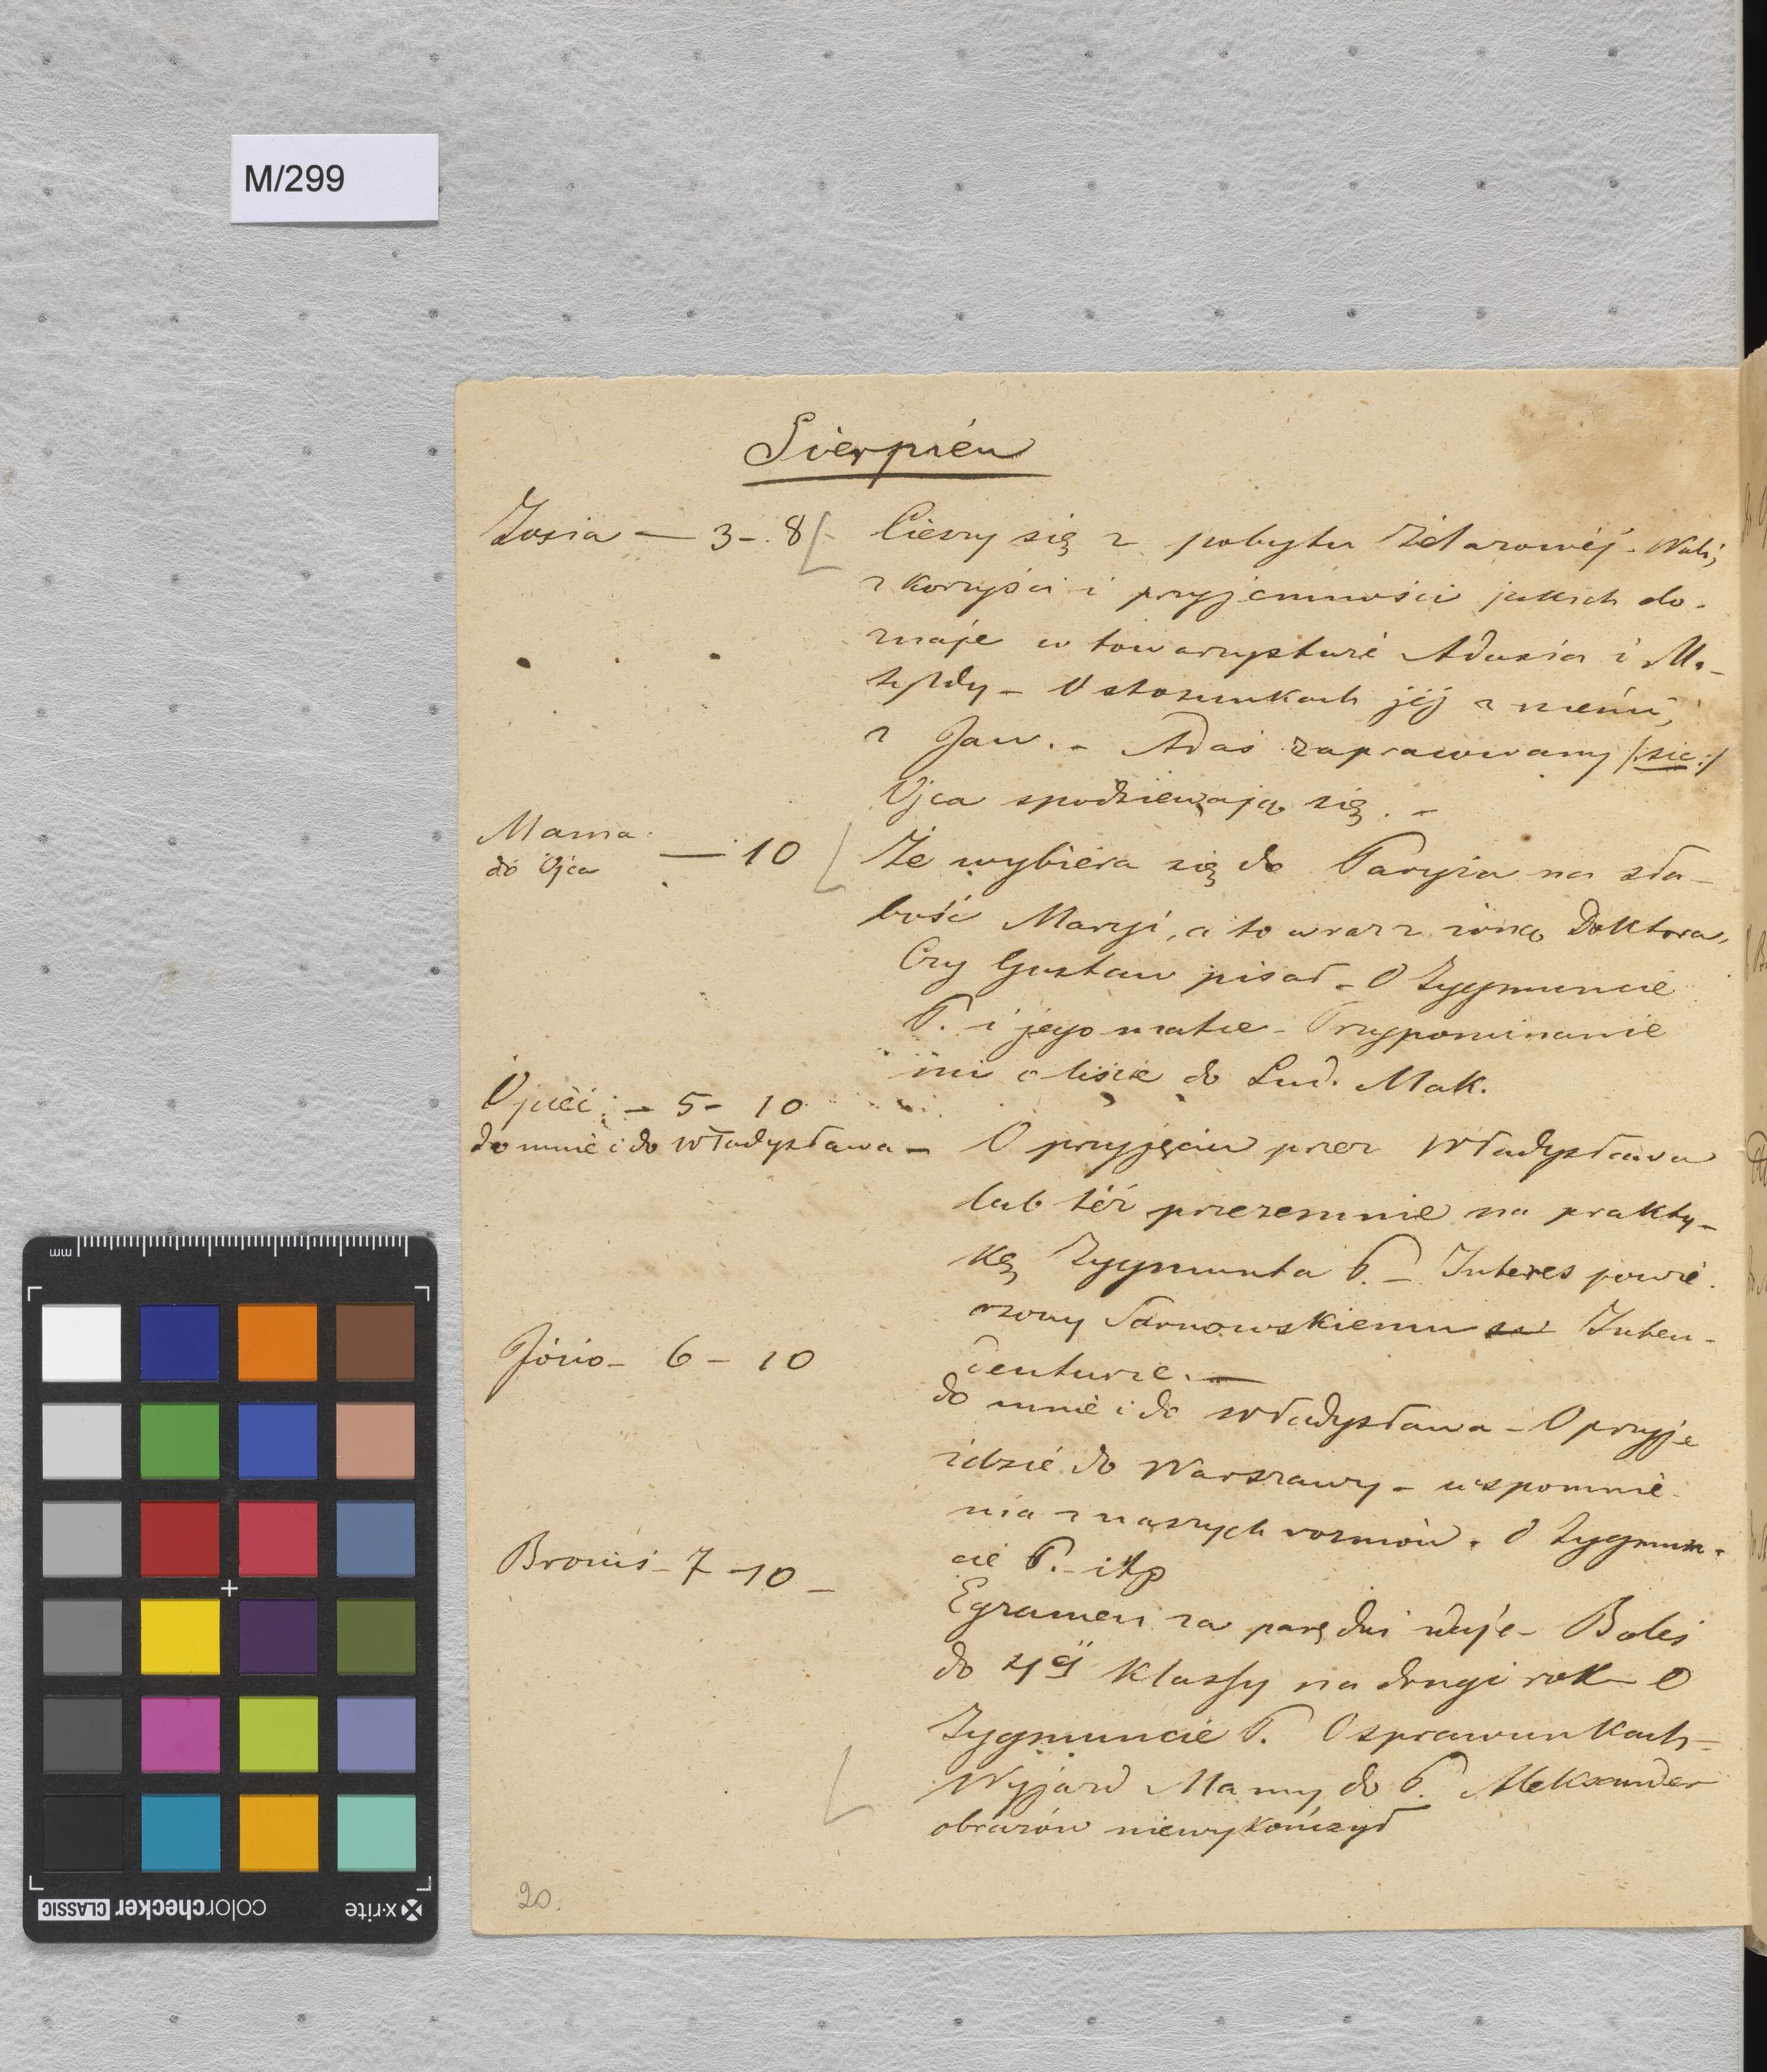 M/299
Sierpień
Zosia — 3 - 8
Cieszy się z pobytu Żelazowéj-Woli,
z korzyści i przyjemności jakich do-
znaje w towarzystwie Adasia i Ma-
tyldy - O stosunkach jéj z niemi,
z Jaw. - Adaś zapracowany /:sic:/
Ojca spodziewają się. -
Mama
do Ojca — 10
Że wybiera się do Paryża na sła-
bość Maryi, a to wraz z żoną Doktora,
Czy Gustaw pisał - O Zygmuncie
P. i jego matce - Przypominanie
mi o liście do Lud. Mak.
Ojciec - 5 - 10
do mnie i do Władysława -
O przyjęciu przez Władysława
lub też przezemnie na prakty-
kę Zygmunta P. - Interes powie-
rzony Sarnowskiemu w Inten-
denturze. —
Józio - 6 - 10
do mnie i do Władysława - O przyje
ździe do Warszawy - wspomnie-
nia z naszych rozmów. O Zygmun-
cie P. - itp
Broniś - 7 - 10 -
Egzamen za parę dni zdaje - Boleś
do 4éj klassy na drugi rok - O
Zygmuncie P. O sprawunkach -
Wyjazd Mamy do P. Aleksander
obrazów niewykończył
20.
mm
x-rite
colorchecker CLASSIC